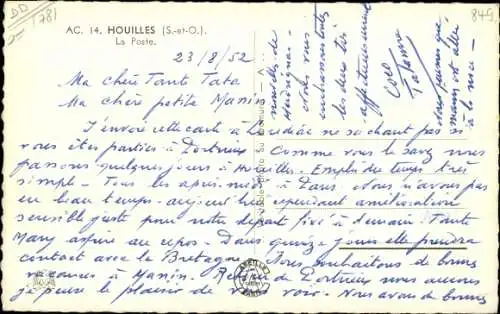 DD
(78)
849
AC. 14. HOUILLES (S.-et-O.).
La Poste.
23/8/52
Ma chère Tante Tata
Ma chère petite Mamin
J'envoie cette carte à Loudéac ne sachant pas si
vous êtes parties à Portrieux. Comme vous le savez nous
passons quelques jours à Houilles. Emploi du temps très
simple. Tous les après-midi à Paris. Nous n'avons pas
eu beau temps. aujourd'hui cependant amélioration
sensible juste pour notre départ fixé à demain. Tante
Many aspire au repos. Dans quinze jours elle prendra
contact avec la Bretagne. Nous souhaitons de bonnes
vacances à Mamin. Retour de Portrieux nous aurons
je pense le plaisir de vous voir. Nous avons de bonnes
nouvelles de
Nous vous
embrassons toutes
les deux très
affectueusement
Coco
Tatanne
maman est allée
à la mer